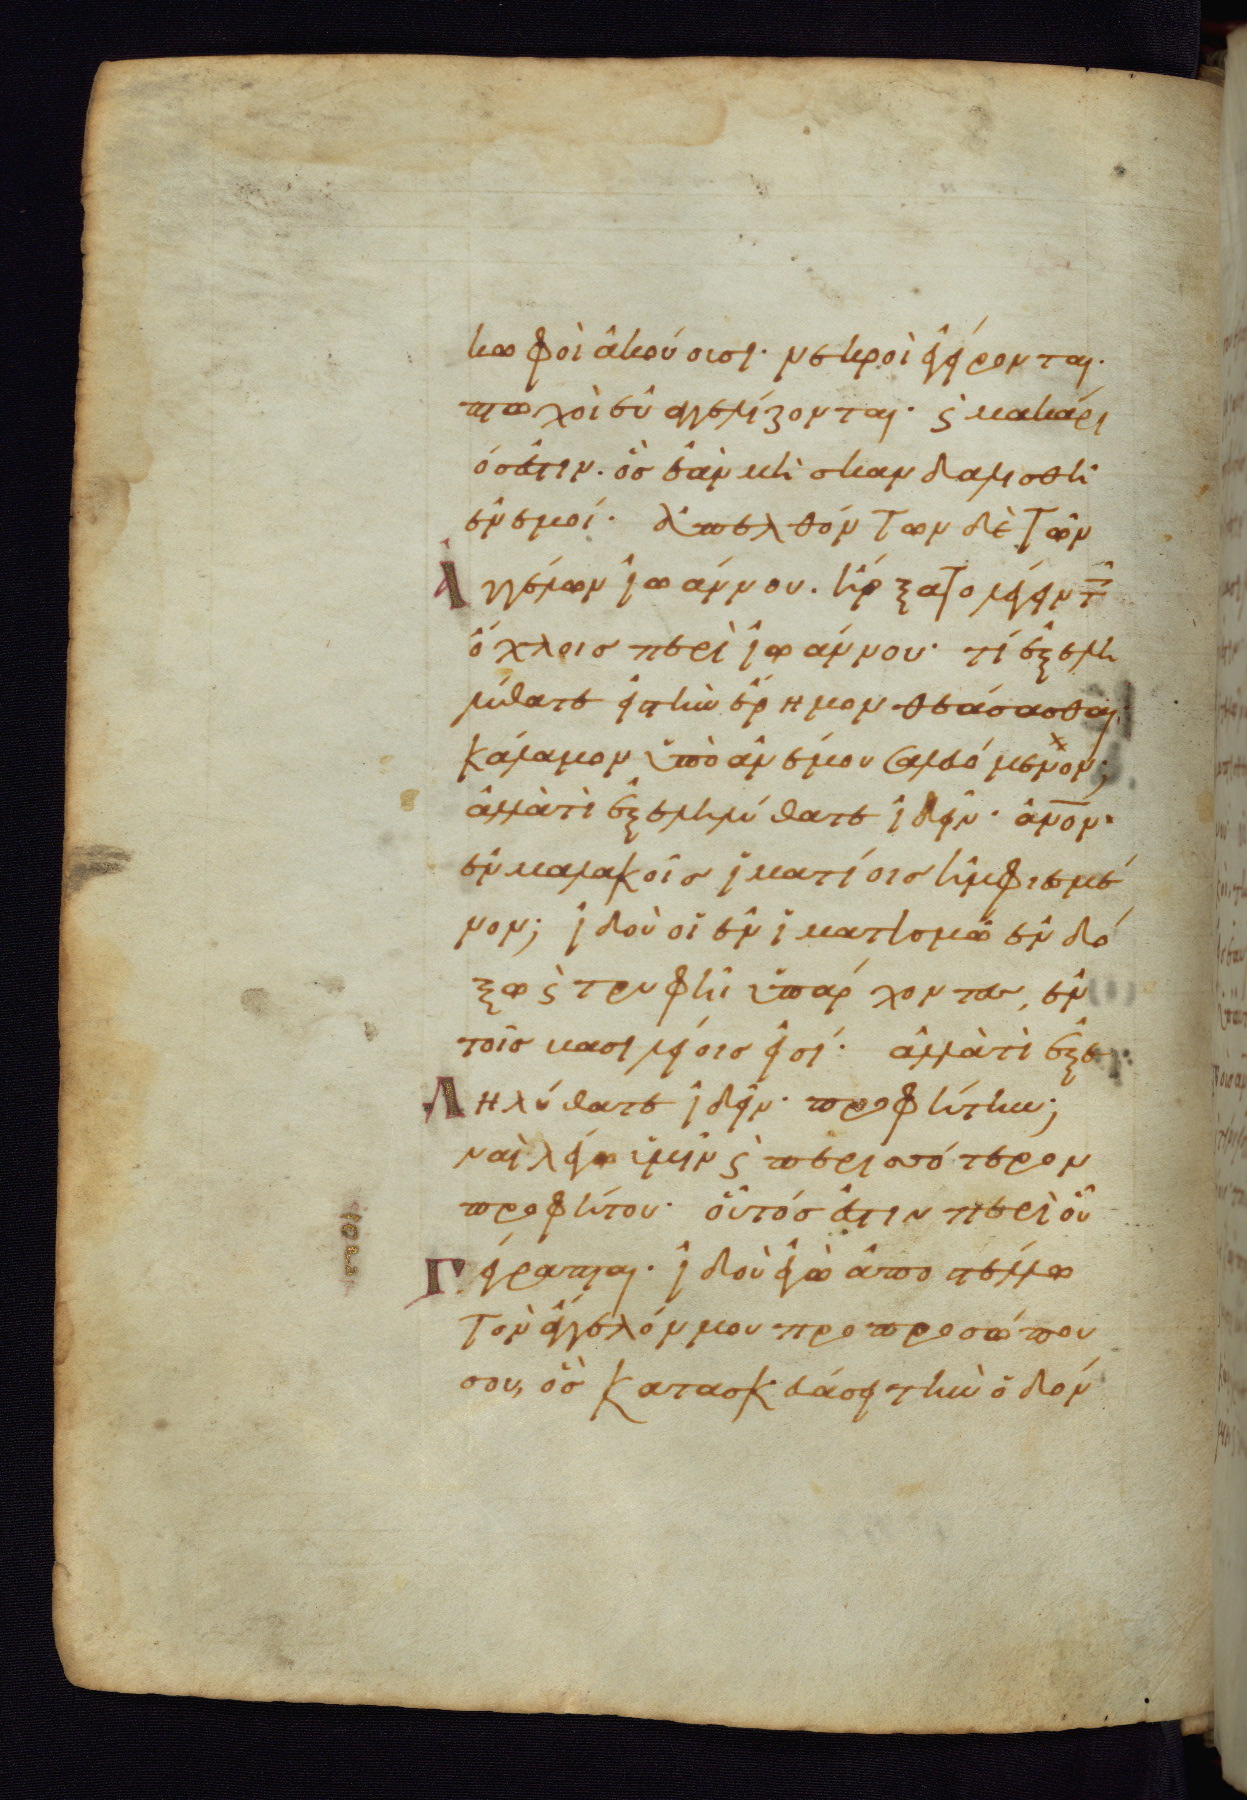 κωφοὶ ἀκούουσι· νεκροὶ ἐγείρονται·
πτωχοὶ εὐαγγελίζονται· ϛ μακάρι
ός ἐστιν. ὃς ἐὰν μὴ σκανδαλισθῆ
ἐν ἐμοί· ἀπελθόντων δὲ τῶν
Αγγέλων ἰωάννου. ἤρξατο λέγειν τ
ὄχλοις περὶ ἰωάννου· τί ἐξελη
λύθατε εἰς τὴν ἔρημον θεάσασθαι;
κάλαμον ὑπὸ ἀνέμου σαλευόμενον;
ἀλλὰ τὶ ἐξεληλύθατε ἰδεῖν· ἀνον·
ἐν μαλακοῖς ἱματίοις ἠμφιεσμέ
νον; ἰδοὺ οἱ ἐν ἱματισμῶ ἐνδό
ξω ϛ τρυφῆ ὑπάρχοντες, ἐν
τοῖς βασιλείοις εἰσί· ἀλλὰ τὶ ἐξε
Ληλύθατε ἰδεῖν· προφήτην;
ναὶ λέγω ὑμῖν ϛ περισσότερον
προφήτου· οὗτός ἐστιν περὶ οὗ
Γέγραπται· ἰδοὺ ἐγὼ ἀποστέλλω
τὸν ἄγγελόν μου πρὸ προσώπου
σου, ὃς κατασκευάσει τὴν ὁδόν